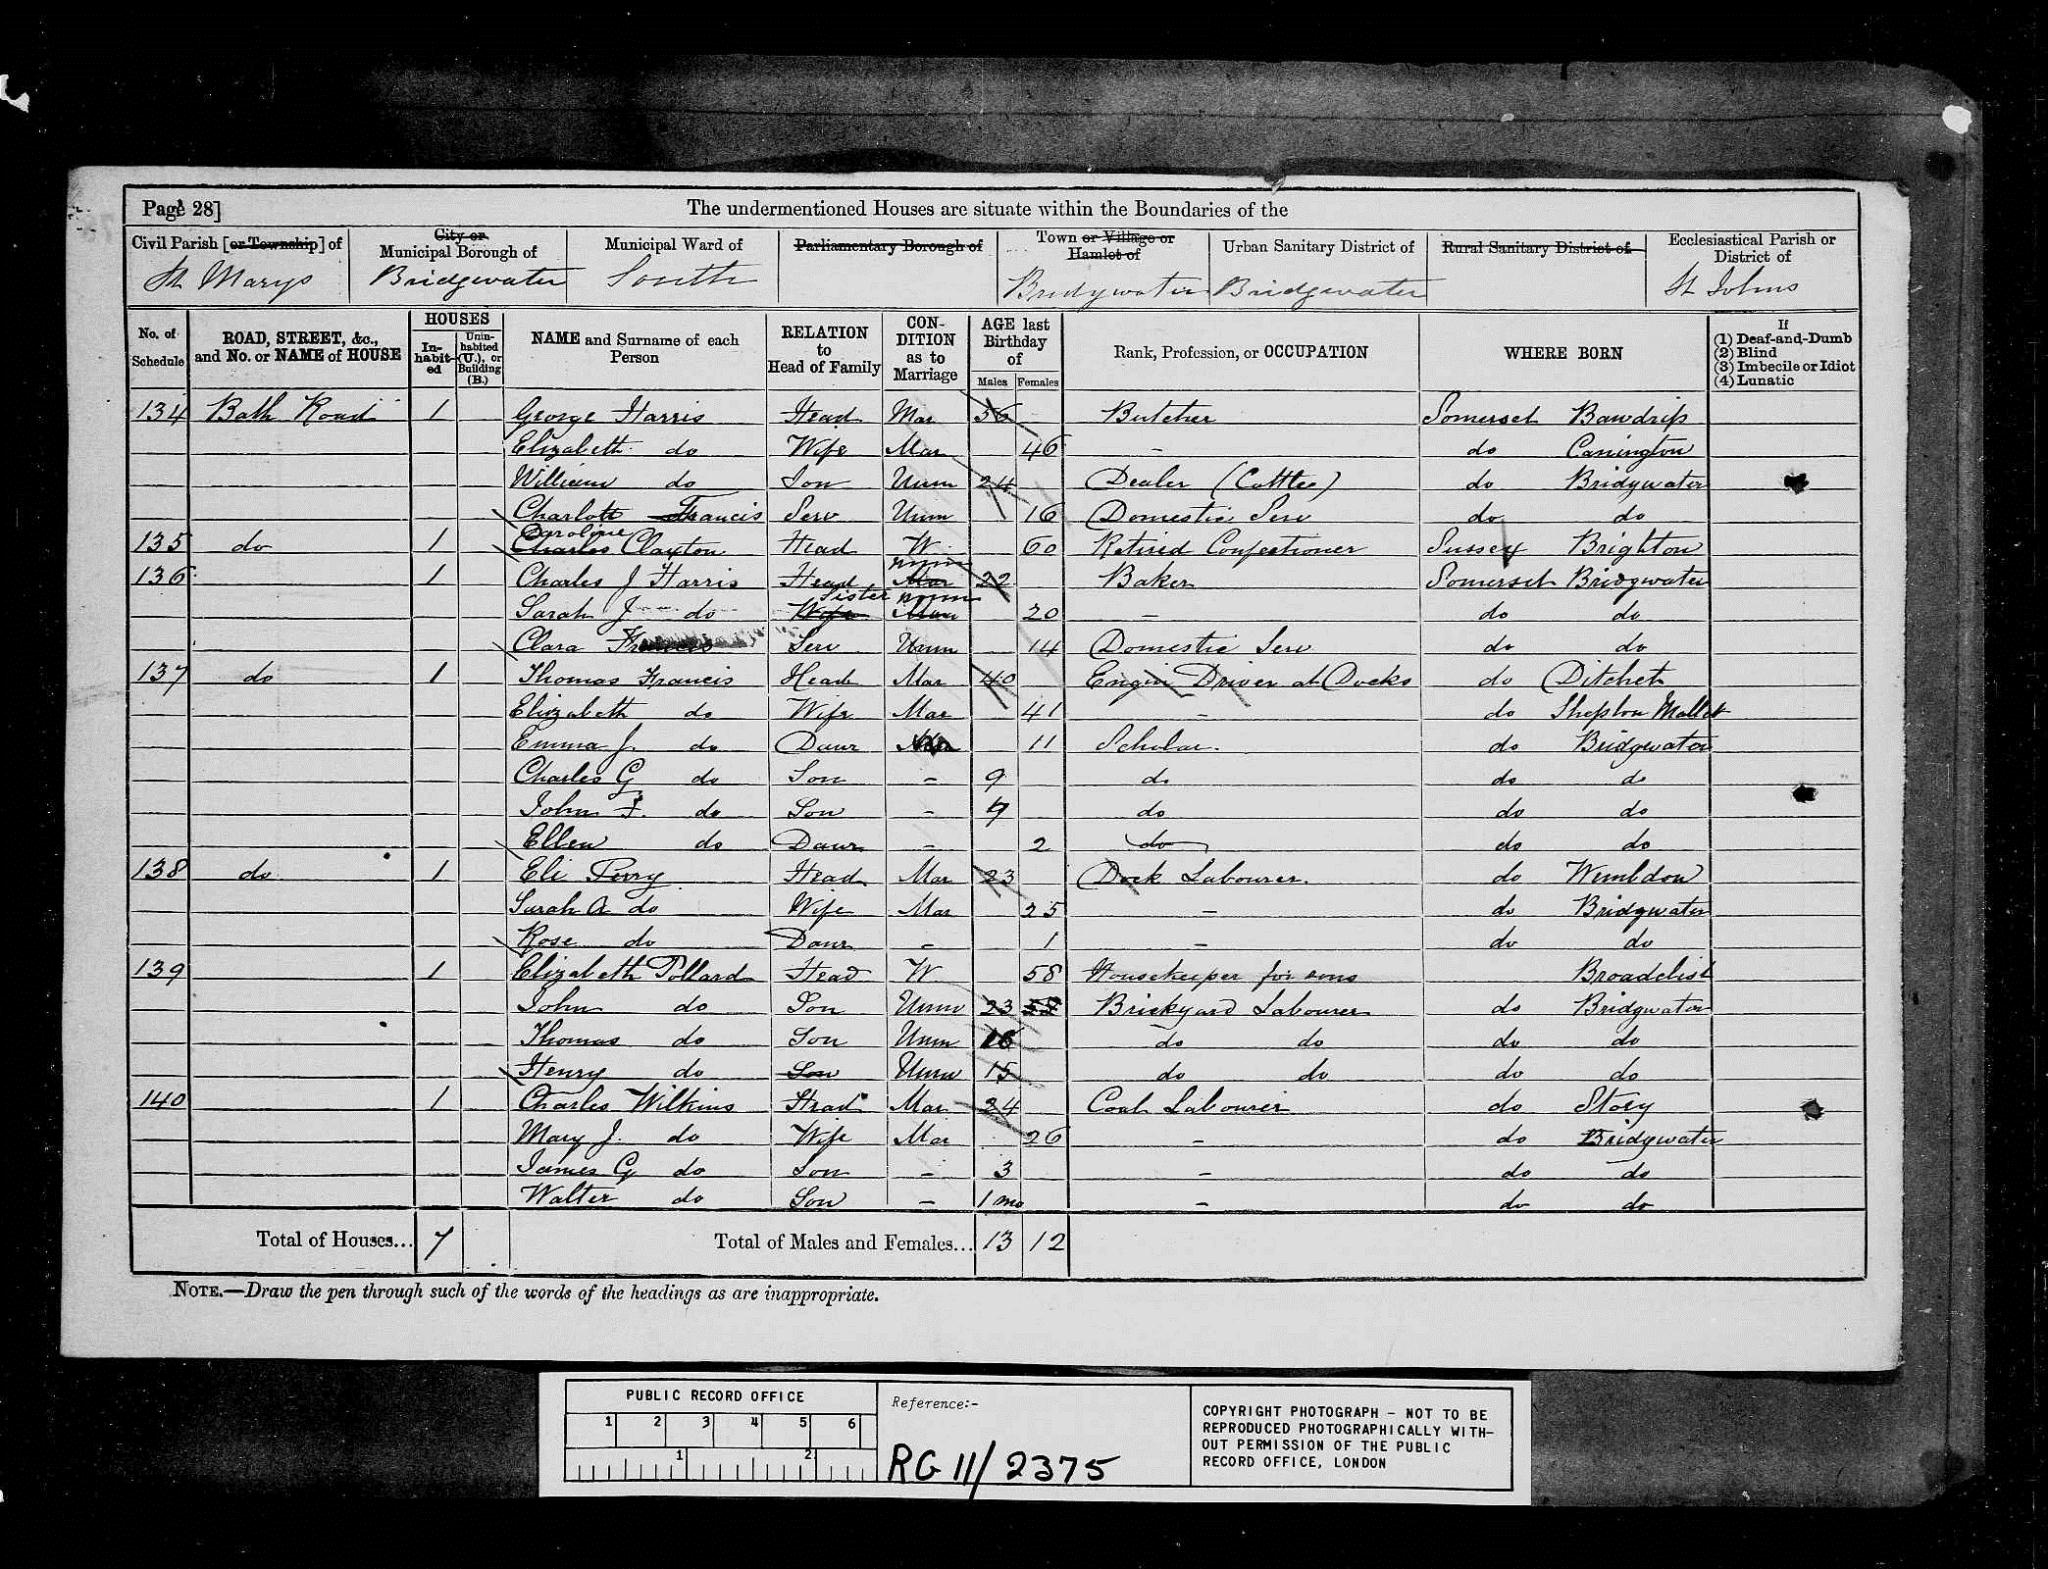 Page 28]
The undermentioned Houses are situate within the Boundaries of the
Civil Parish [or Township] of
St Marys
City or Municipal Borough of
Bridgwater
Municipal Ward of
South
Parliamentary Borough of
Town or Village or Hamlet of
Bridgwater
Urban Sanitary District of
Bridgewater
Rural Sanitary District of
Ecclesiastical Parish or District of
St Johns
No. of Schedule
ROAD, STREET, &c., and No. or NAME of HOUSE
HOUSES
In-habit-ed
Unin-habited (U.), or Building (B.)
NAME and Surname of each Person
RELATION to Head of Family
CON-DITION as to Marriage
AGE last Birthday of
Males Females
Rank, Profession, or OCCUPATION
WHERE BORN
If
(1) Deaf-and-Dumb
(2) Blind
(3) Imbecile or Idiot
(4) Lunatic
134 Bath Road 1 George Harris Head Mar 56 Butcher Somerset Bawdrip
Elizabeth do Wife Mar 46 - do Cannington
William do Son Unm 24 Dealer (Cattle) do Bridgwater
Charlott Francis Serv Unm 16 Domestic Serv do do
Caroline
135 do 1 Charles Clayton Head W 60 Retired Confectioner Sussex Brighton
unm
136 1 Charles J Harris Head Mar 22 Baker Somerset Bridgwater
Sister unm
Sarah J do Wife Mar 20 - do do
Clara Francis Serv Unm 14 Domestic Serv do do
137 do 1 Thomas Francis Head Mar 40 Engin Driver at Docks do Ditchet
Elizabeth do Wife Mar 41 - do Shepton Mallet
Emma J. do Daur 11 Scholar. do Bridgwater
Charles G do Son - 9 do do do
John F. do Son - 7 do do do
Ellen do Daur - 2 do do do
138 do 1 Eli Perry Head Mar 23 Dock Labourer. do Wembdon
Sarah A do Wife Mar 25 - do Bridgwater
Rose do Daur - 1 - do do
139 1 Elizabeth Pollard Head W 58 Housekeeper for sons Broadclist
John do Son Unm 23 58 Brickyard Labourer do Bridgwater
Thomas do Son Unm 16 do do do do
Henry do Son Unm 15 do do do do
140 1 Charles Wilkins Head Mar 24 Coal Labourer do Stoey
Mary J. do Wife Mar 26 - do Bridgwater
James G do Son - 3 - do do
Walter do Son - 1 mo - do do
Total of Houses... 7 Total of Males and Females... 13 12
NOTE.—Draw the pen through such of the words of the headings as are inappropriate.
PUBLIC RECORD OFFICE
1 2 3 4 5 6
1 2
Reference:-
RG 11/2375
COPYRIGHT PHOTOGRAPH – NOT TO BE
REPRODUCED PHOTOGRAPHICALLY WITH-
OUT PERMISSION OF THE PUBLIC
RECORD OFFICE, LONDON